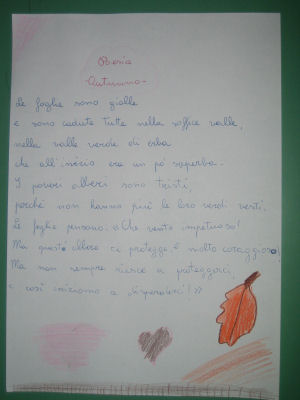 Poesia
Autunno-
Le foglie sono gialle
e sono cadute tutte nella soffice valle,
nella valle verde di erba
che all'inizio era un po' superba.
I poveri alberi sono tristi
perché non hanno più le loro verdi vesti.
Le foglie pensano: «Che vento impetuoso!
Ma questo albero ci protegge è molto coraggioso,
Ma non sempre riesce a proteggerci,
e così iniziamo a disperderci!»